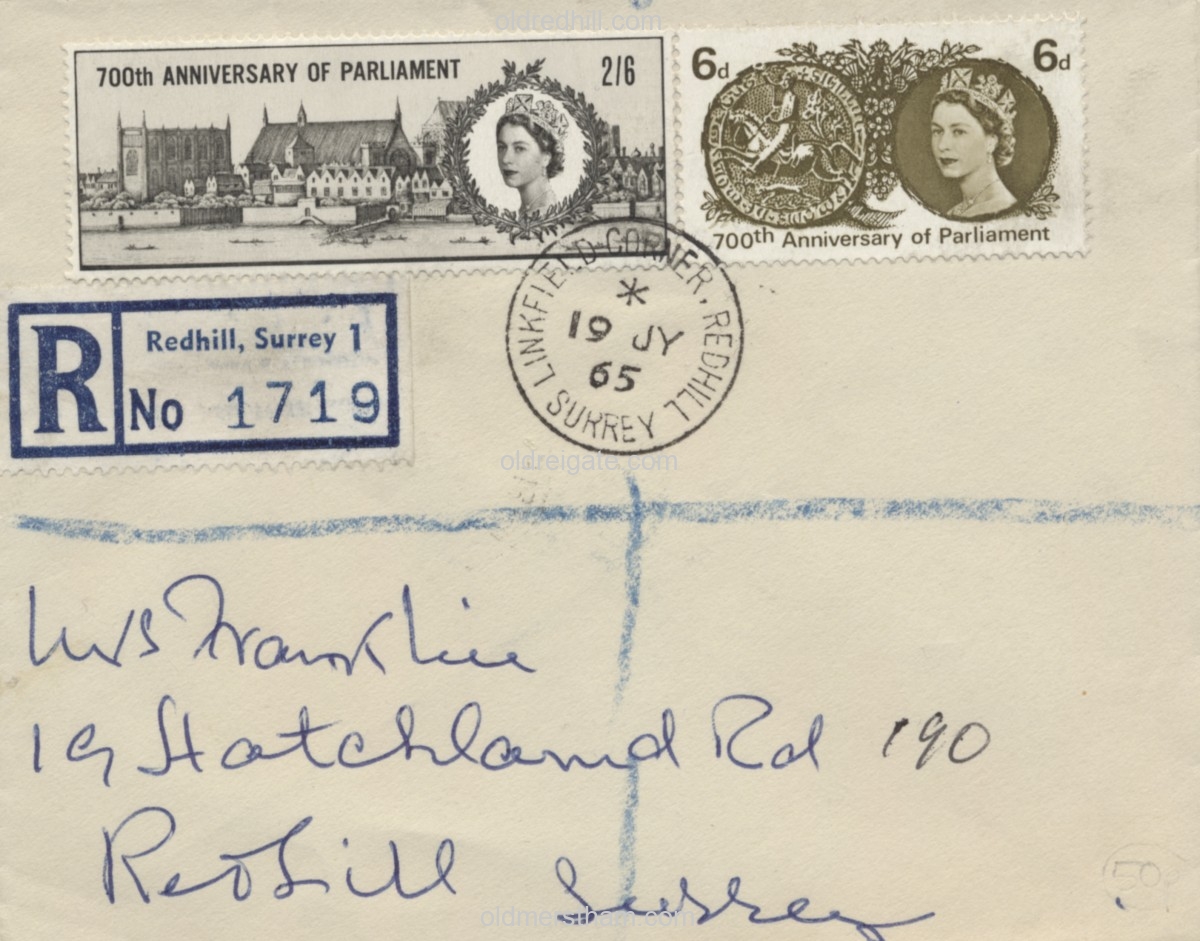 oldredhill.com
700th ANNIVERSARY OF PARLIAMENT 2/6
6d 6d
700th Anniversary of Parliament
LINKFIELD CORNER, REDHILL SURREY
19 JY
65
R
Redhill, Surrey 1
No 1719
oldreigate.com
Mrs Franklin
19 Hatchland Rd 190
Redhill Surrey
50
oldmerstham.com